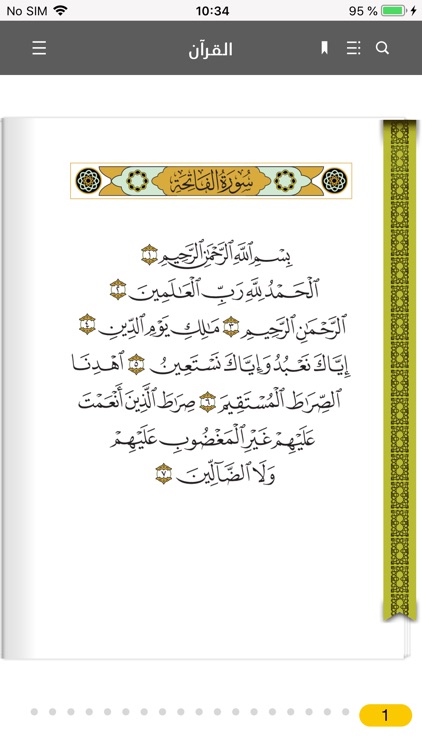 No SIM 10:34 95 %
القرآن
سُورَةُ الفَاتِحَةِ
بِسْمِ ٱللَّهِ ٱلرَّحْمَٰنِ ٱلرَّحِيمِ ١
ٱلْحَمْدُ لِلَّهِ رَبِّ ٱلْعَٰلَمِينَ ٢
ٱلرَّحْمَٰنِ ٱلرَّحِيمِ ٣ مَٰلِكِ يَوْمِ ٱلدِّينِ ٤
إِيَّاكَ نَعْبُدُ وَإِيَّاكَ نَسْتَعِينُ ٥ ٱهْدِنَا
ٱلصِّرَٰطَ ٱلْمُسْتَقِيمَ ٦ صِرَٰطَ ٱلَّذِينَ أَنْعَمْتَ
عَلَيْهِمْ غَيْرِ ٱلْمَغْضُوبِ عَلَيْهِمْ
وَلَا ٱلضَّآلِّينَ ٧
1